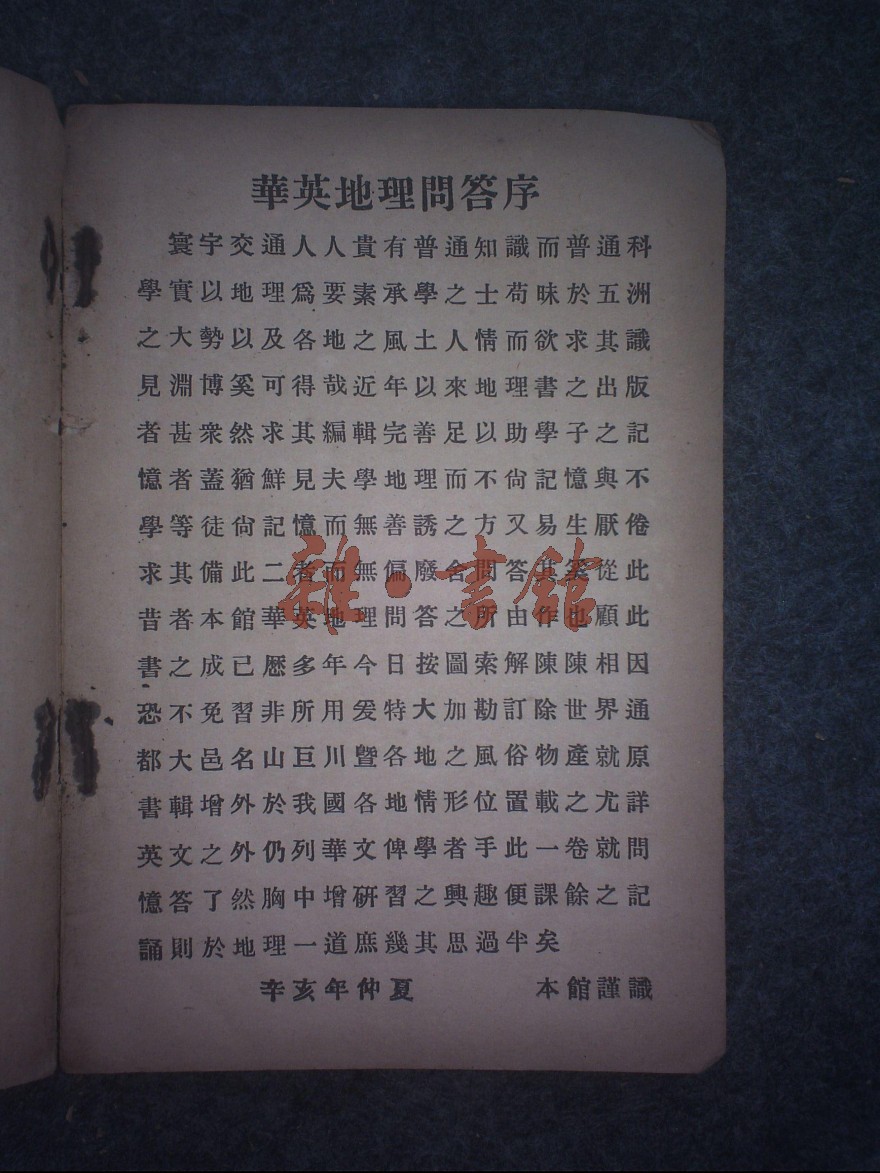 華英地理問答序
寰宇交通人人貴有普通知識而普通科
學實以地理為要素承學之士苟昧於五洲
之大勢以及各地之風土人情而欲求其識
見淵博奚可得哉近年以來地理書之出版
者甚衆然求其編輯完善足以助學子之記
憶者蓋猶鮮見夫學地理而不尙記憶與不
學等徒尙記憶而無善誘之方又易生厭倦
求其備此二者而無偏廢舍問答其奚從此
昔者本館華英地理問答之所由作也顧此
書之成已歷多年今日按圖索解陳陳相因
恐不免習非所用爰特大加勘訂除世界通
都大邑名山巨川曁各地之風俗物產就原
書輯增外於我國各地情形位置載之尤詳
英文之外仍列華文俾學者手此一卷就問
憶答了然胸中增硏習之興趣便課餘之記
誦則於地理一道庶幾其思過半矣
辛亥年仲夏 本館謹識
雜·書館